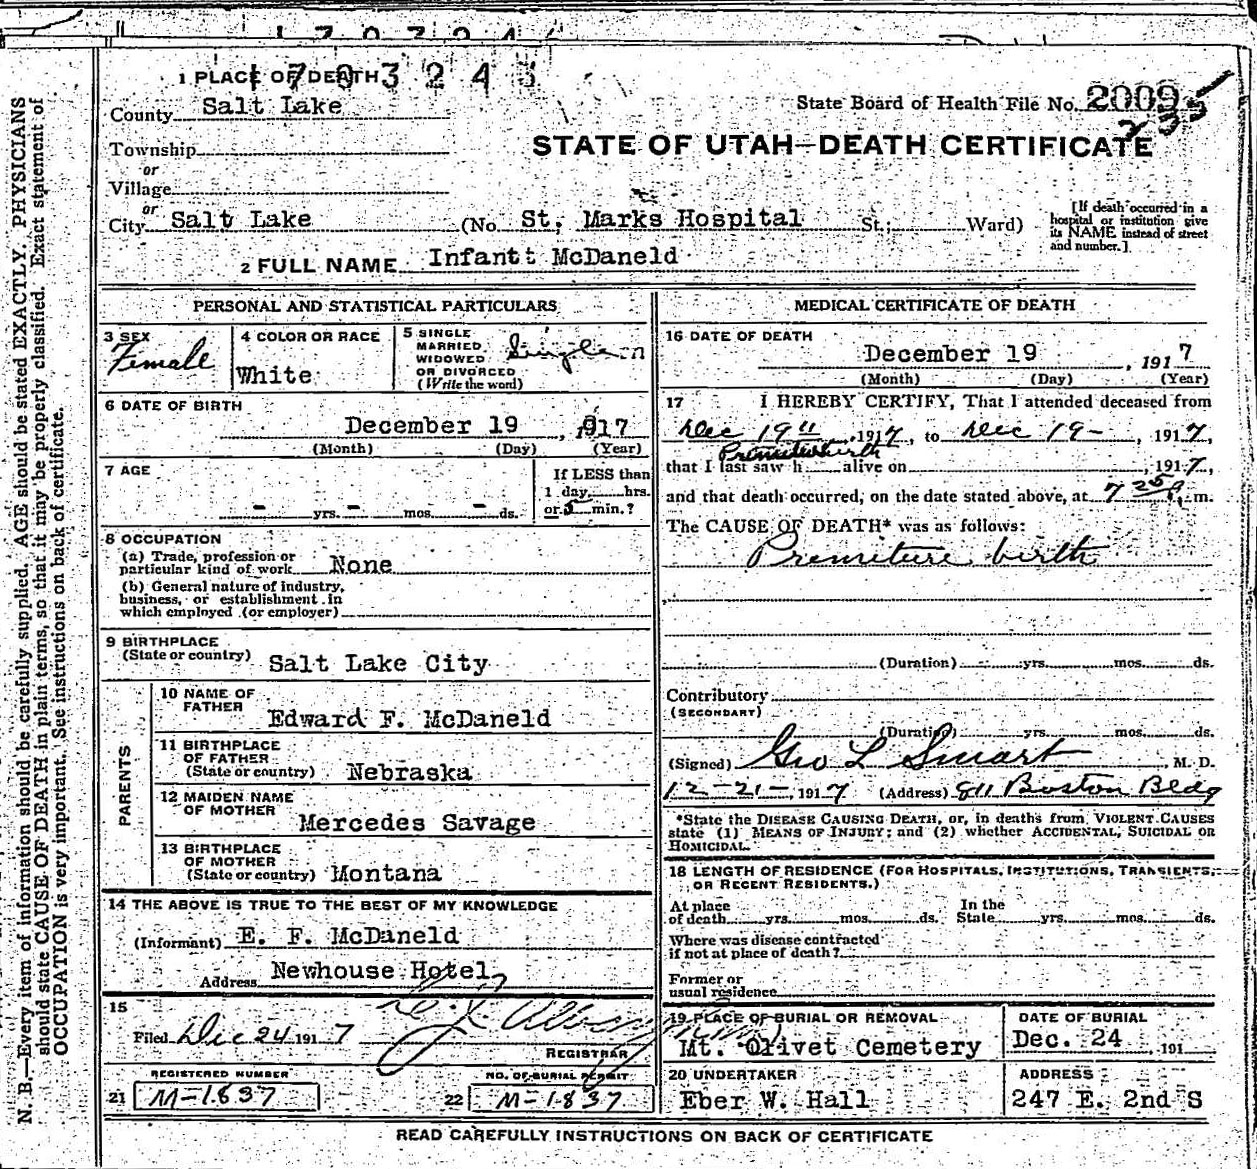 1 PLACE OF DEATH
1703243
County Salt Lake
State Board of Health File No. 2009
235
STATE OF UTAH—DEATH CERTIFICATE
Township
or
Village
or
City Salt Lake (No. St. Marks Hospital St.; Ward)
[If death occurred in a
hospital or institution give
its NAME instead of street
and number.]
2 FULL NAME Infant: McDaneld
PERSONAL AND STATISTICAL PARTICULARS
3 SEX
Female
4 COLOR OR RACE
White
5 SINGLE
MARRIED
WIDOWED
OR DIVORCED
(Write the word)
Single
6 DATE OF BIRTH
December 19, 1917
(Month) (Day) (Year)
7 AGE
- yrs. - mos. - ds.
If LESS than
1 day hrs.
or 5 min.?
8 OCCUPATION
(a) Trade, profession or
particular kind of work None
(b) General nature of industry,
business, or establishment in
which employed (or employer)
9 BIRTHPLACE
(State or country) Salt Lake City
PARENTS
10 NAME OF
FATHER
Edward F. McDaneld
11 BIRTHPLACE
OF FATHER
(State or country) Nebraska
12 MAIDEN NAME
OF MOTHER
Mercedes Savage
13 BIRTHPLACE
OF MOTHER
(State or country) Montana
14 THE ABOVE IS TRUE TO THE BEST OF MY KNOWLEDGE
(Informant) E. F. McDaneld
Address Newhouse Hotel
15
Filed Dec 24 1917
REGISTRAR
REGISTERED NUMBER
21 M-1837
NO. OF BURIAL PERMIT
22 M-1837
MEDICAL CERTIFICATE OF DEATH
16 DATE OF DEATH
December 19, 1917
(Month) (Day) (Year)
17 I HEREBY CERTIFY, That I attended deceased from
Dec 19", 1917, to Dec 19-, 1917,
Premiture birth
that I last saw h alive on , 1917,
and that death occurred, on the date stated above, at 7 25 a. m.
The CAUSE OF DEATH* was as follows:
Premiture birth
(Duration) yrs. mos. ds.
Contributory
(SECONDARY)
(Duration) yrs. mos. ds.
(Signed) Geo L Smart, M. D.
12-21-, 1917 (Address) 811 Boston Bldg
*State the DISEASE CAUSING DEATH, or, in deaths from VIOLENT CAUSES
state (1) MEANS OF INJURY; and (2) whether ACCIDENTAL, SUICIDAL OR
HOMICIDAL.
18 LENGTH OF RESIDENCE (FOR HOSPITALS, INSTITUTIONS, TRANSIENTS,
OR RECENT RESIDENTS.)
At place
of death yrs. mos. ds.
In the
State yrs. mos. ds.
Where was disease contracted
if not at place of death?
Former or
usual residence
19 PLACE OF BURIAL OR REMOVAL
Mt. Olivet Cemetery
DATE OF BURIAL
Dec. 24, 191
20 UNDERTAKER
Eber W. Hall
ADDRESS
247 E. 2nd S
READ CAREFULLY INSTRUCTIONS ON BACK OF CERTIFICATE
N. B.—Every item of information should be carefully supplied. AGE should be stated EXACTLY. PHYSICIANS
should state CAUSE OF DEATH in plain terms, so that it may be properly classified. Exact statement of
OCCUPATION is very important. See instructions on back of certificate.